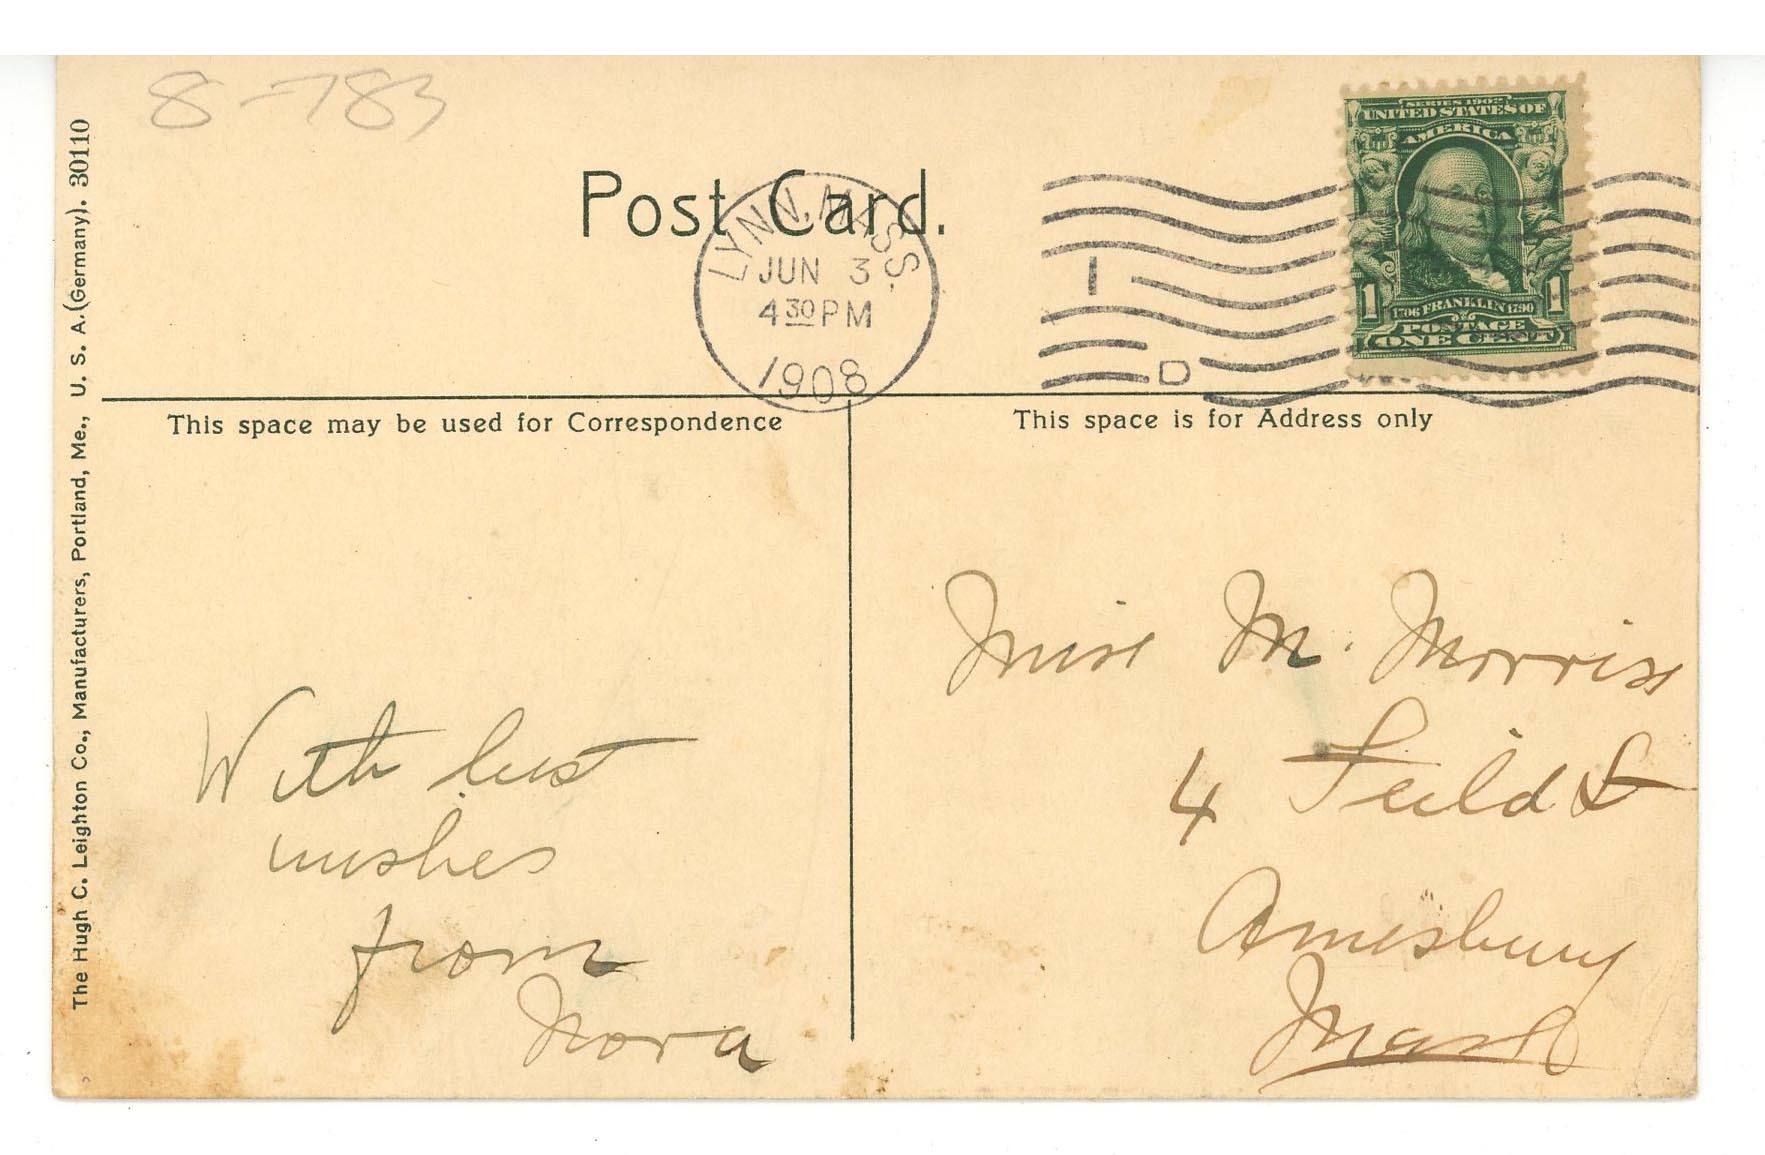 8-783
The Hugh C. Leighton Co., Manufacturers, Portland, Me., U. S. A. (Germany). 30110
Post Card.
LYNN, MASS.
JUN 3
4 30 PM
1908
1
D
SERIES 1902
UNITED STATES OF
AMERICA
1 1706 FRANKLIN 1790 1
POSTAGE
ONE CENT
This space may be used for Correspondence
This space is for Address only
With best
wishes
from
Nora
Miss M. Morriss
4 Feild St
Amesbury
Mass